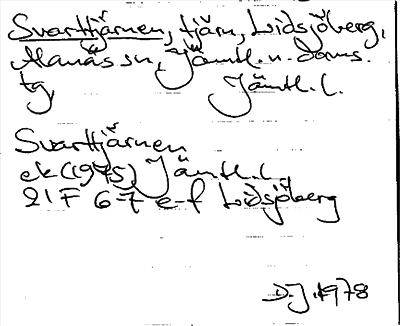 Svarttjärnen, tjärn, Lidsjöberg,
Alanäs sn, Jämtl. n. doms.
tg, Jämtl. l.
Svarttjärnen
ek (1975) Jämtl. l.
21F 6-7 e-f Lidsjöberg
D.J. 1978